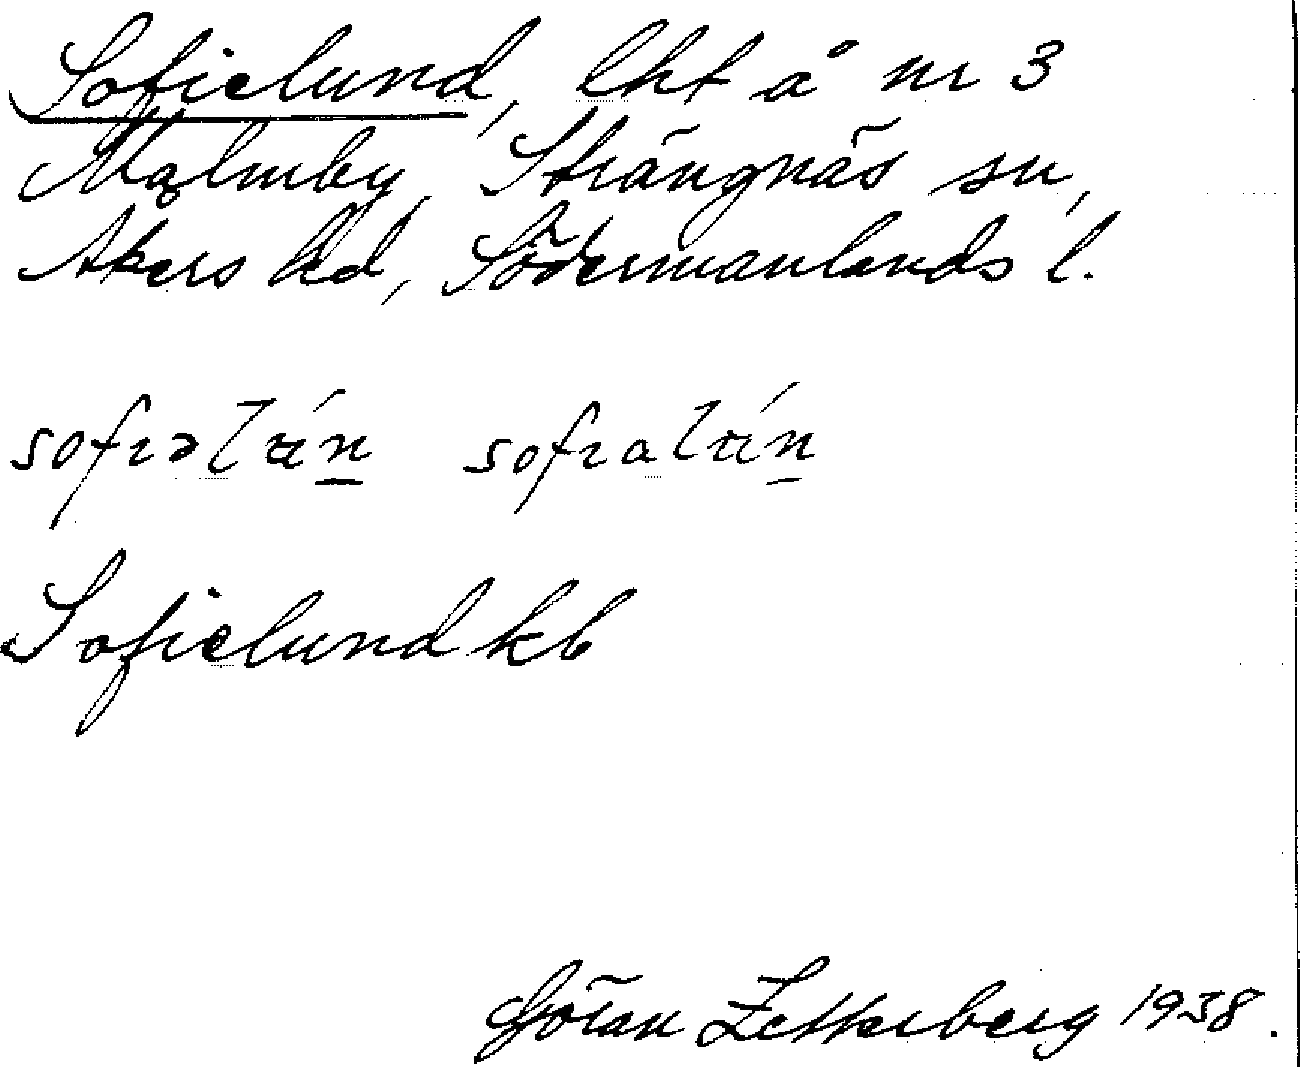 Sofielund, lht å nr 3
Malmby, Strängnäs sn,
Åkers hd, Södermanlands l.
Sofielund kb
Göran Zetterberg 1938.